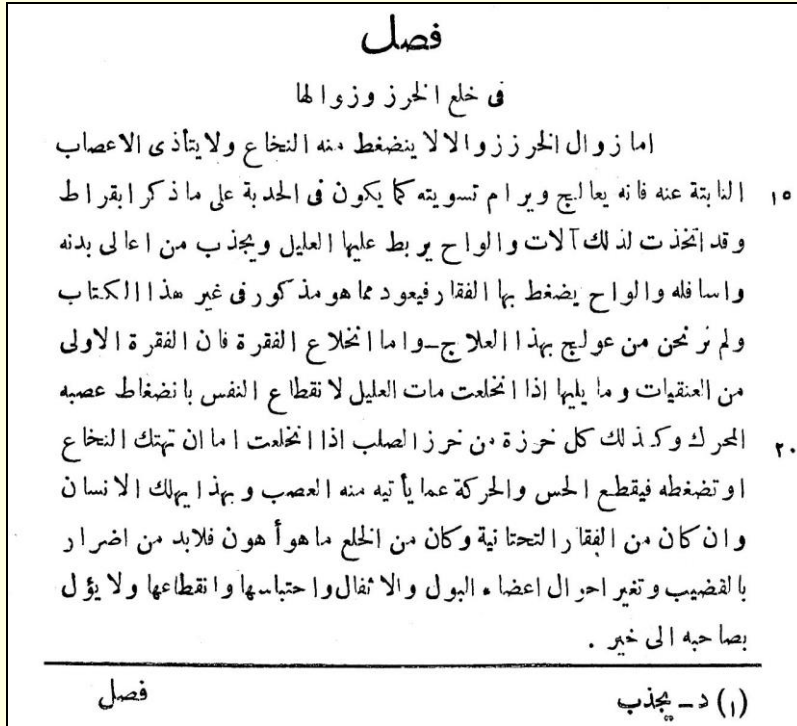 فصل
فى خلع الخرز وزوالها
اما زوال الخرز زوالا لا ينضغط منه النخاع ولا يتأذى الاعصاب
١٥ النابتة عنه فانه يعالج ويرام تسويته كما يكون فى الحدبة على ما ذكر ابقراط
وقد اتخذت لذلك آلات والواح يربط عليها العليل ويجذب من اعالى بدنه
واسافله والواح يضغط بها الفقار فيعود مما هو مذكور فى غير هذا الكتاب
ولم نر نحن من عولج بهذا العلاج ــ واما انخلاع الفقرة فان الفقرة الاولى
من العنقيات وما يليها اذا انخلعت مات العليل لانقطاع النفس بانضغاط عصبه
٢٠ المحرك وكذلك كل خرزة من خرز الصلب اذا انخلعت اما ان تهتك النخاع
او تضغطه فيقطع الحس والحركة عما يأتيه منه العصب وبهذا يهلك الانسان
وان كان من الفقار التحتانية وكان من الخلع ما هو أهون فلابد من اضرار
بالقضيب وتغير احوال اعضاء البول والاثفال واحتباسها وانقطاعها ولا يؤل
بصاحبه الى خير .
(١) د ــ يجذب
فصل